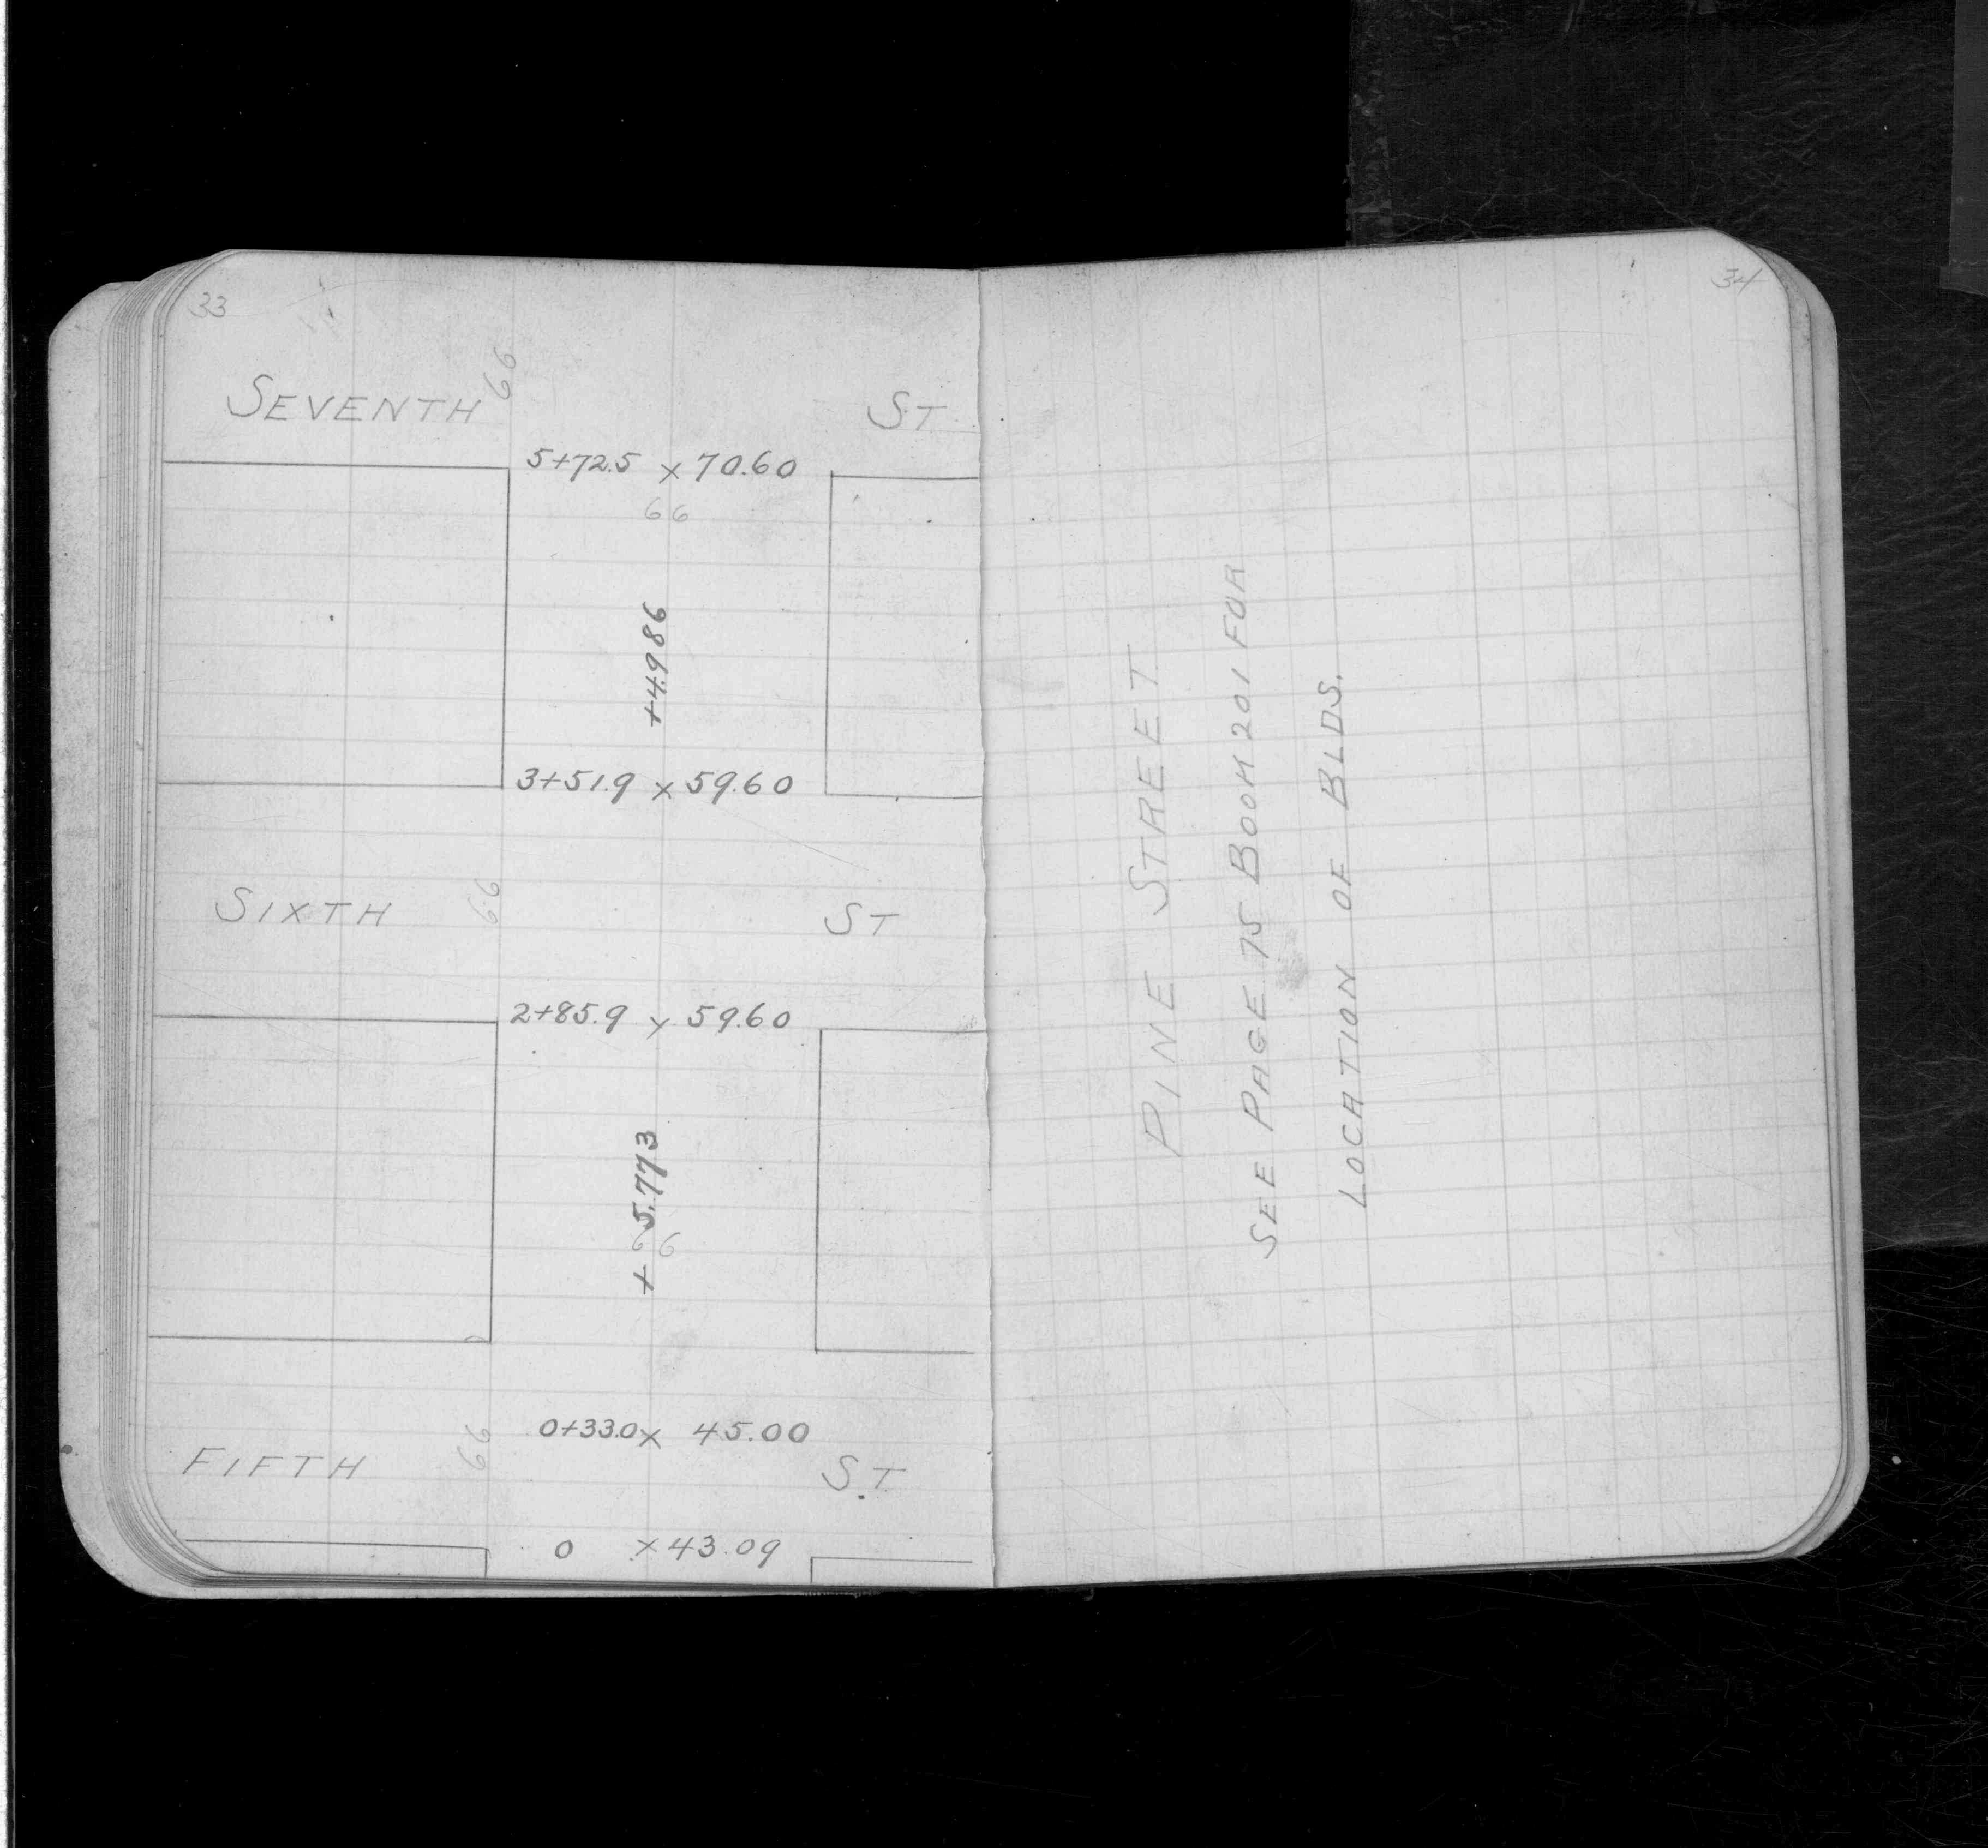 33
SEVENTH 66 ST
5+72.5 x 70.60
66
+4.986
3+51.9 x 59.60
SIXTH 66 ST
2+85.9 x 59.60
+ 5.773
66
0+33.0 x 45.00
FIFTH 66 ST.
0 x 43.09
34
PINE STREET
SEE PAGE 75 BOOK 201 FOR
LOCATION OF BLDS.